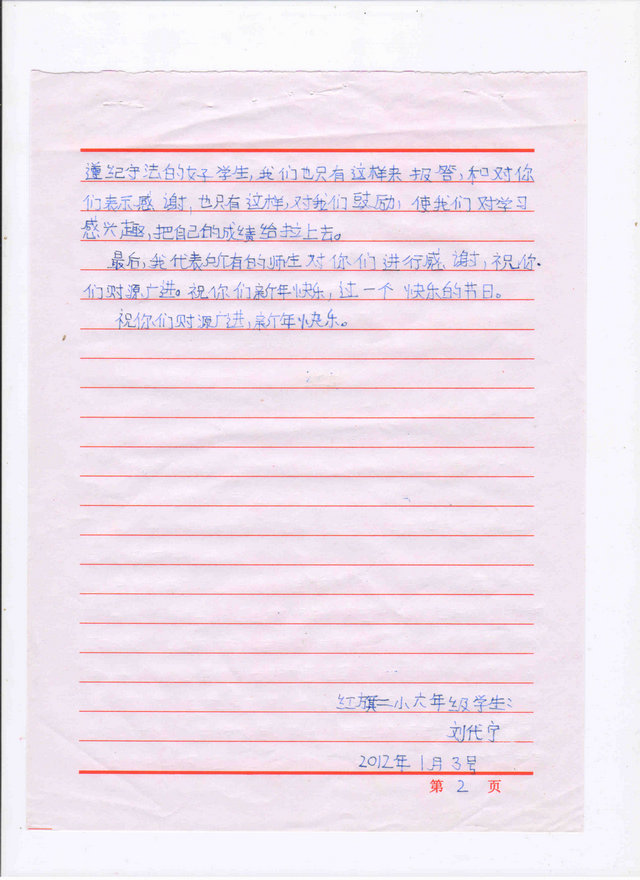 遵纪守法的好学生,我们也只有这样来报答,和对你
们表示感谢,也只有这样,对我们鼓励,使我们对学习
感兴趣,把自己的成绩给拉上去。
最后,我代表所有的师生对你们进行感谢,祝你
们财源广进。祝你们新年快乐,过一个快乐的节日。
祝你们财源广进,新年快乐。
红旗二小六年级学生:
刘代宁
2012年1月3号
第2页